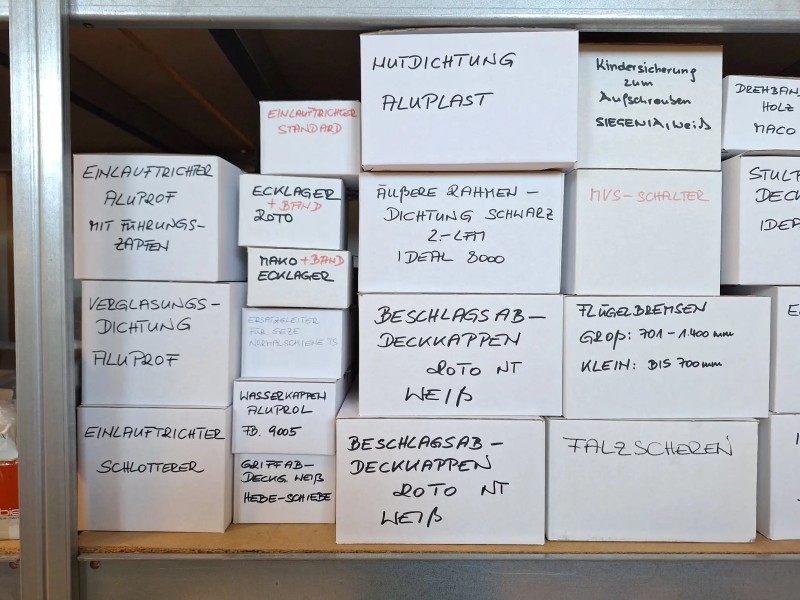 EINLAUFTRICHTER
ALUPROF
MIT FÜHRUNGS-
ZAPFEN
VERGLASUNGS-
DICHTUNG
ALUPROF
EINLAUFTRICHTER
SCHLOTTERER
EINLAUFTRICHTER
STANDARD
ECKLAGER
+ BAND
ROTO
MAKO + BAND
ECKLAGER
ERSATZGLEITER
FÜR GEZE
NORMALSCHIENE TS
WASSERKAPPEN
ALUPROL
FB. 9005
GRIFFAB-
DECKG. WEIß
HEBE-SCHIEBE
NUTDICHTUNG
ALUPLAST
ÄUßERE RAHMEN-
DICHTUNG SCHWARZ
2.-LFM
IDEAL 8000
BESCHLAGSAB-
DECKKAPPEN
ROTO NT
WEIß
BESCHLAGSAB-
DECKKAPPEN
ROTO NT
WEIß
Kindersicherung
zum
Aufschrauben
SIEGENIA, Weiß
MVS-SCHALTER
FLÜGELBREMSEN
GROß: 701-1.400 mm
KLEIN: BIS 700 mm
FALZSCHEREN
DREHBAN
HOLZ
MACO
STULP
DECK
IDEA